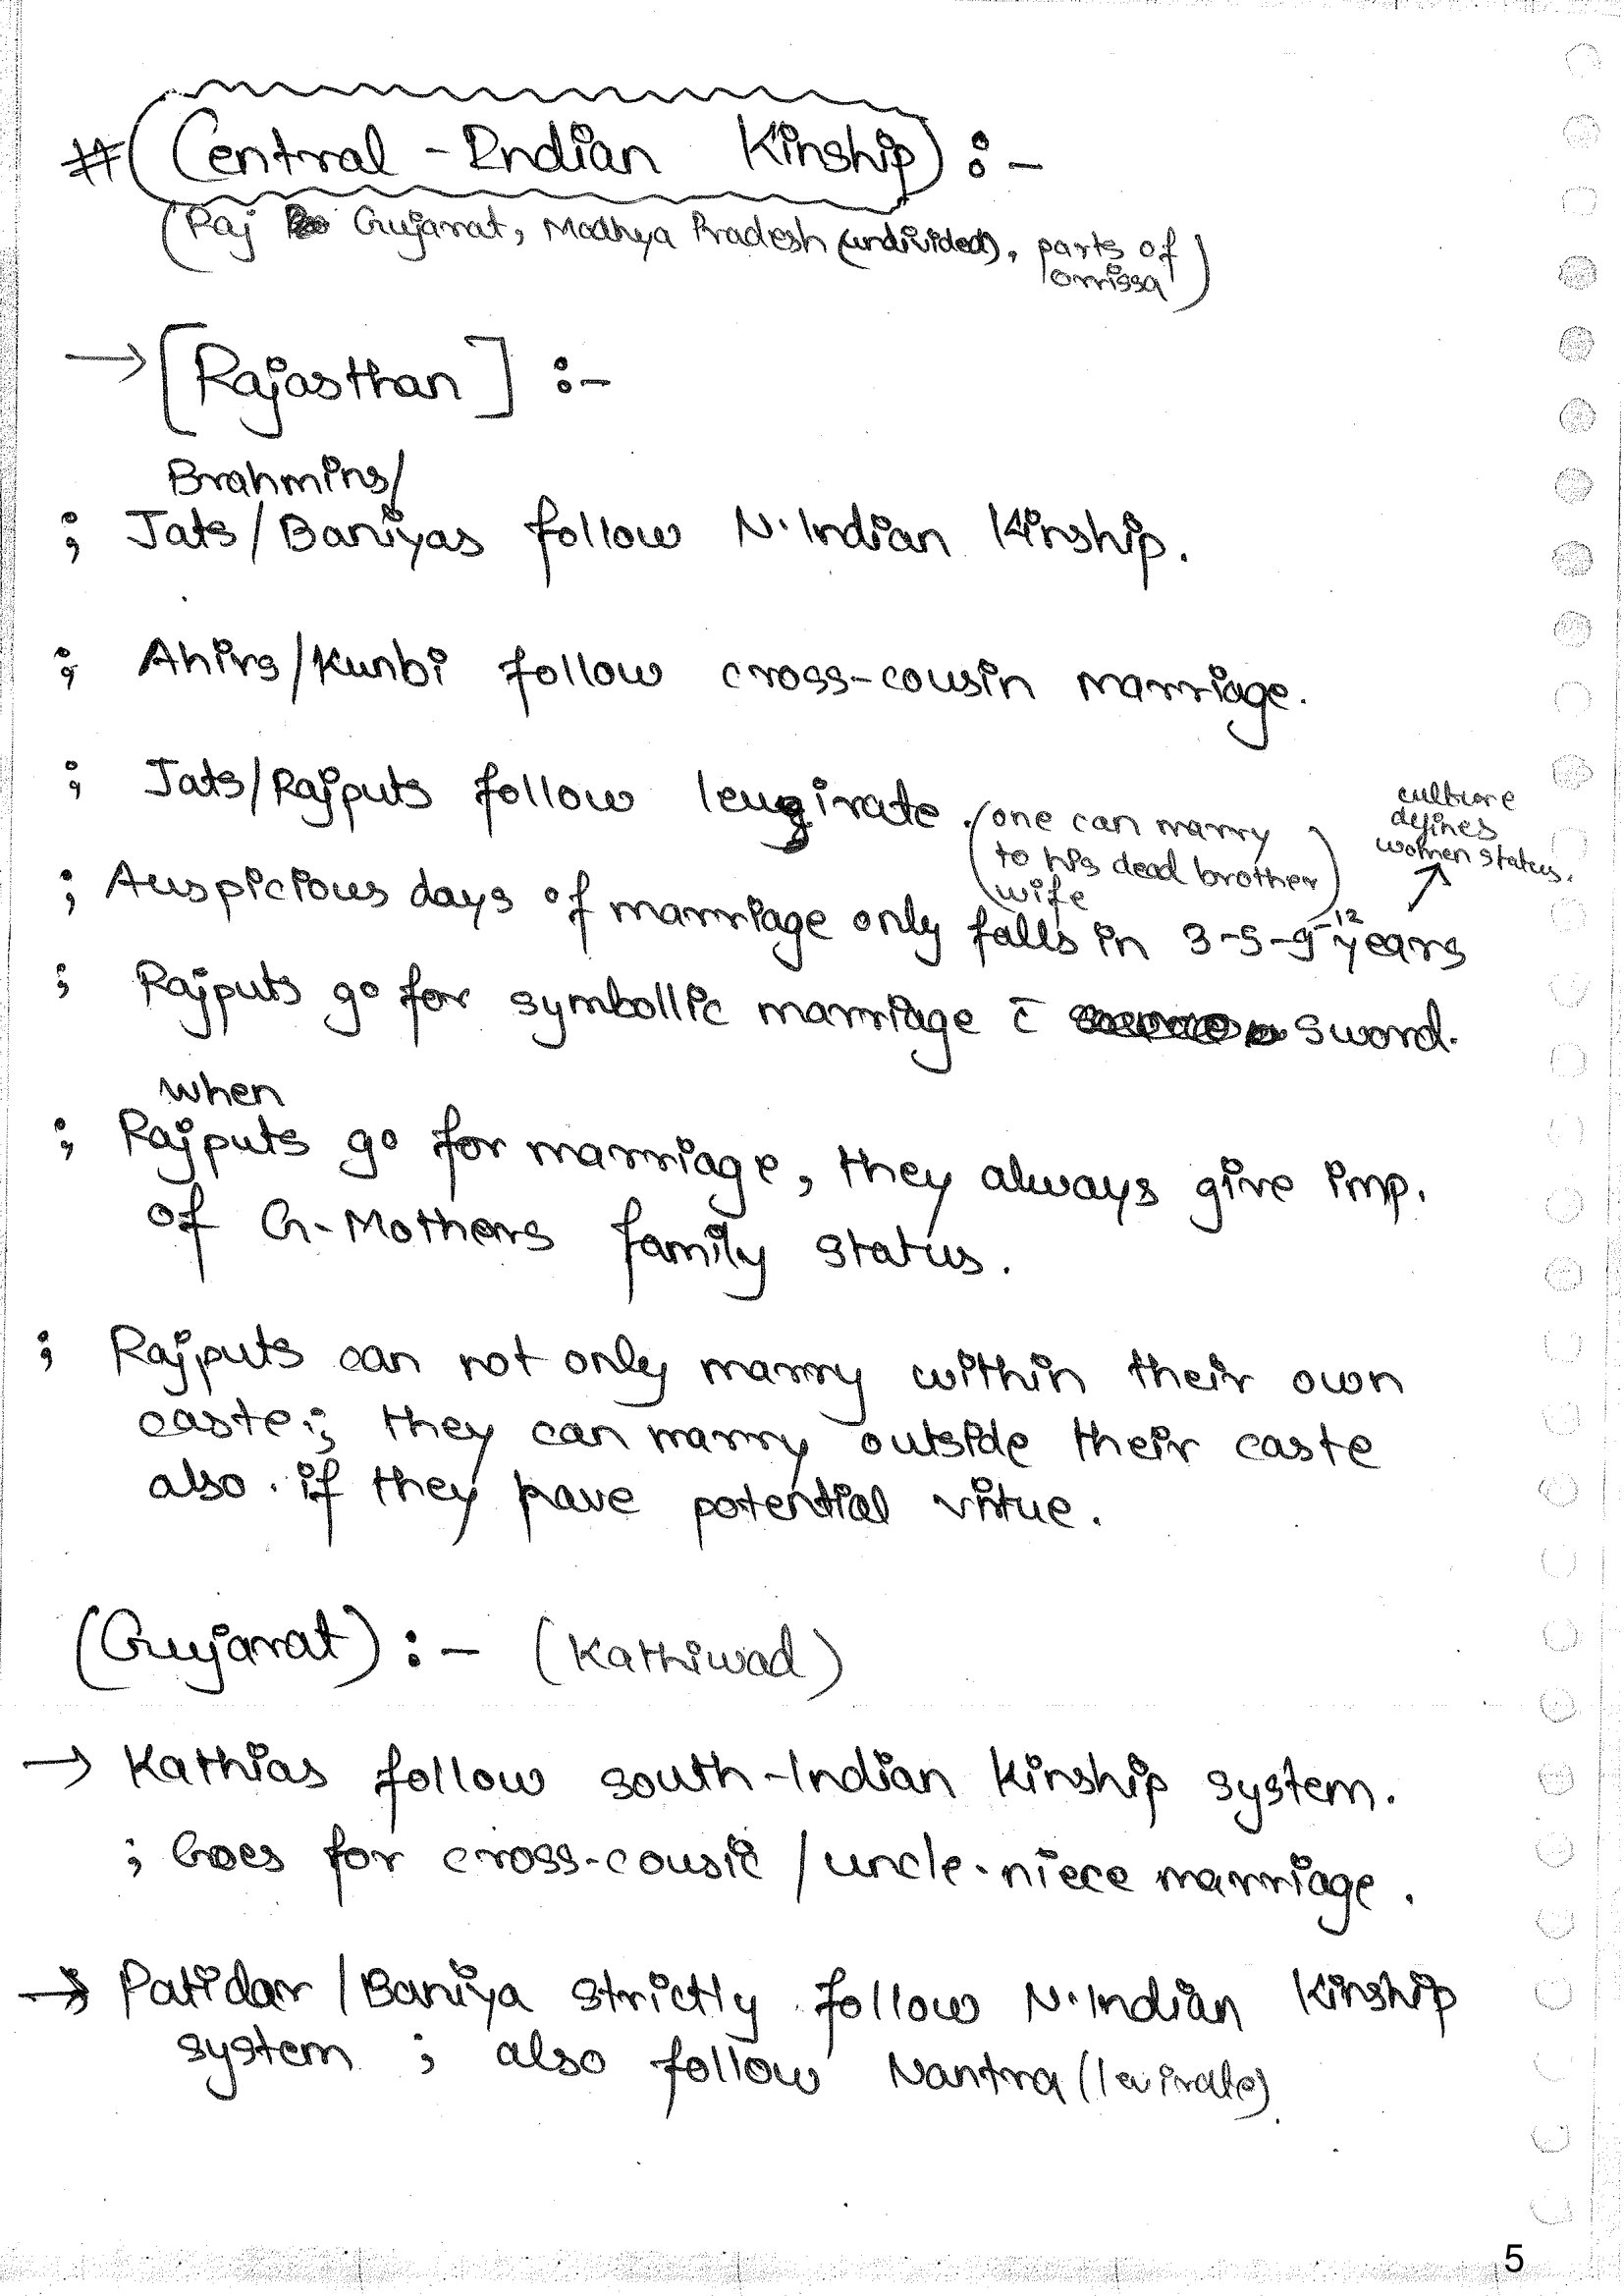 # (Central - Indian Kinship) :-
(Raj Gujarat, Madhya Pradesh (undivided), parts of
orrissa)
→ [Rajasthan] :-
Brahmins/
; Jats/Baniyas follow N.Indian Kinship.
; Ahirs/Kunbi follow cross-cousin marriage.
; Jats/Rajputs follow levirate. (one can marry
to his dead brother
wife)
culture
defines
women status.
; Auspicious days of marriage only falls in 3-5-9-12 years
; Rajputs go for symbollic marriage c̄ sword.
when
; Rajputs go for marriage, they always give imp.
of G-Mothers family status.
; Rajputs can not only marry within their own
caste; they can marry outside their caste
also. if they have potential virtue.
(Gujarat) :- (Kathiwad)
→ Kathias follow south-Indian kinship system.
; Goes for cross-cousic / uncle-niece marriage.
→ Patidar / Baniya strictly follow N.Indian Kinship
system ; also follow Nantra (levirate)
5